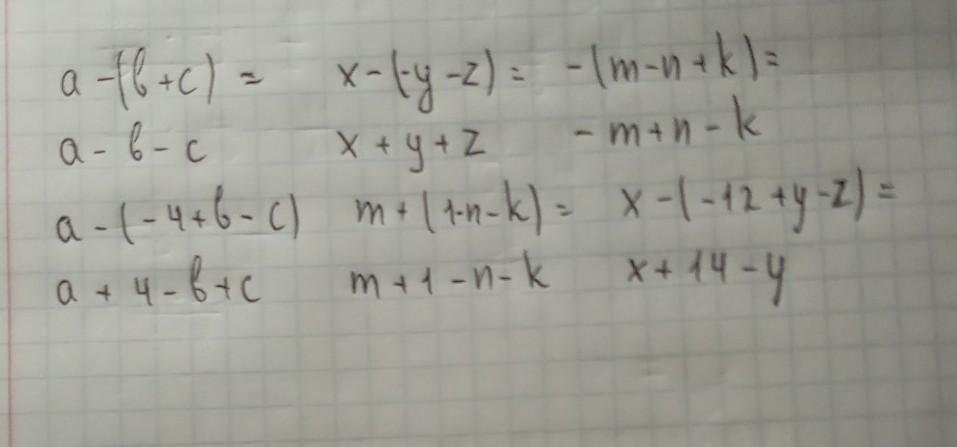 a - (в + c) = x - (-y - z) = - (m - n + k) =
a - в - c x + y + z - m + n - k
a - (- 4 + в - c) m + (1 - n - k) = x - (- 12 + y - z) =
a + 4 - в + c m + 1 - n - k x + 14 - y